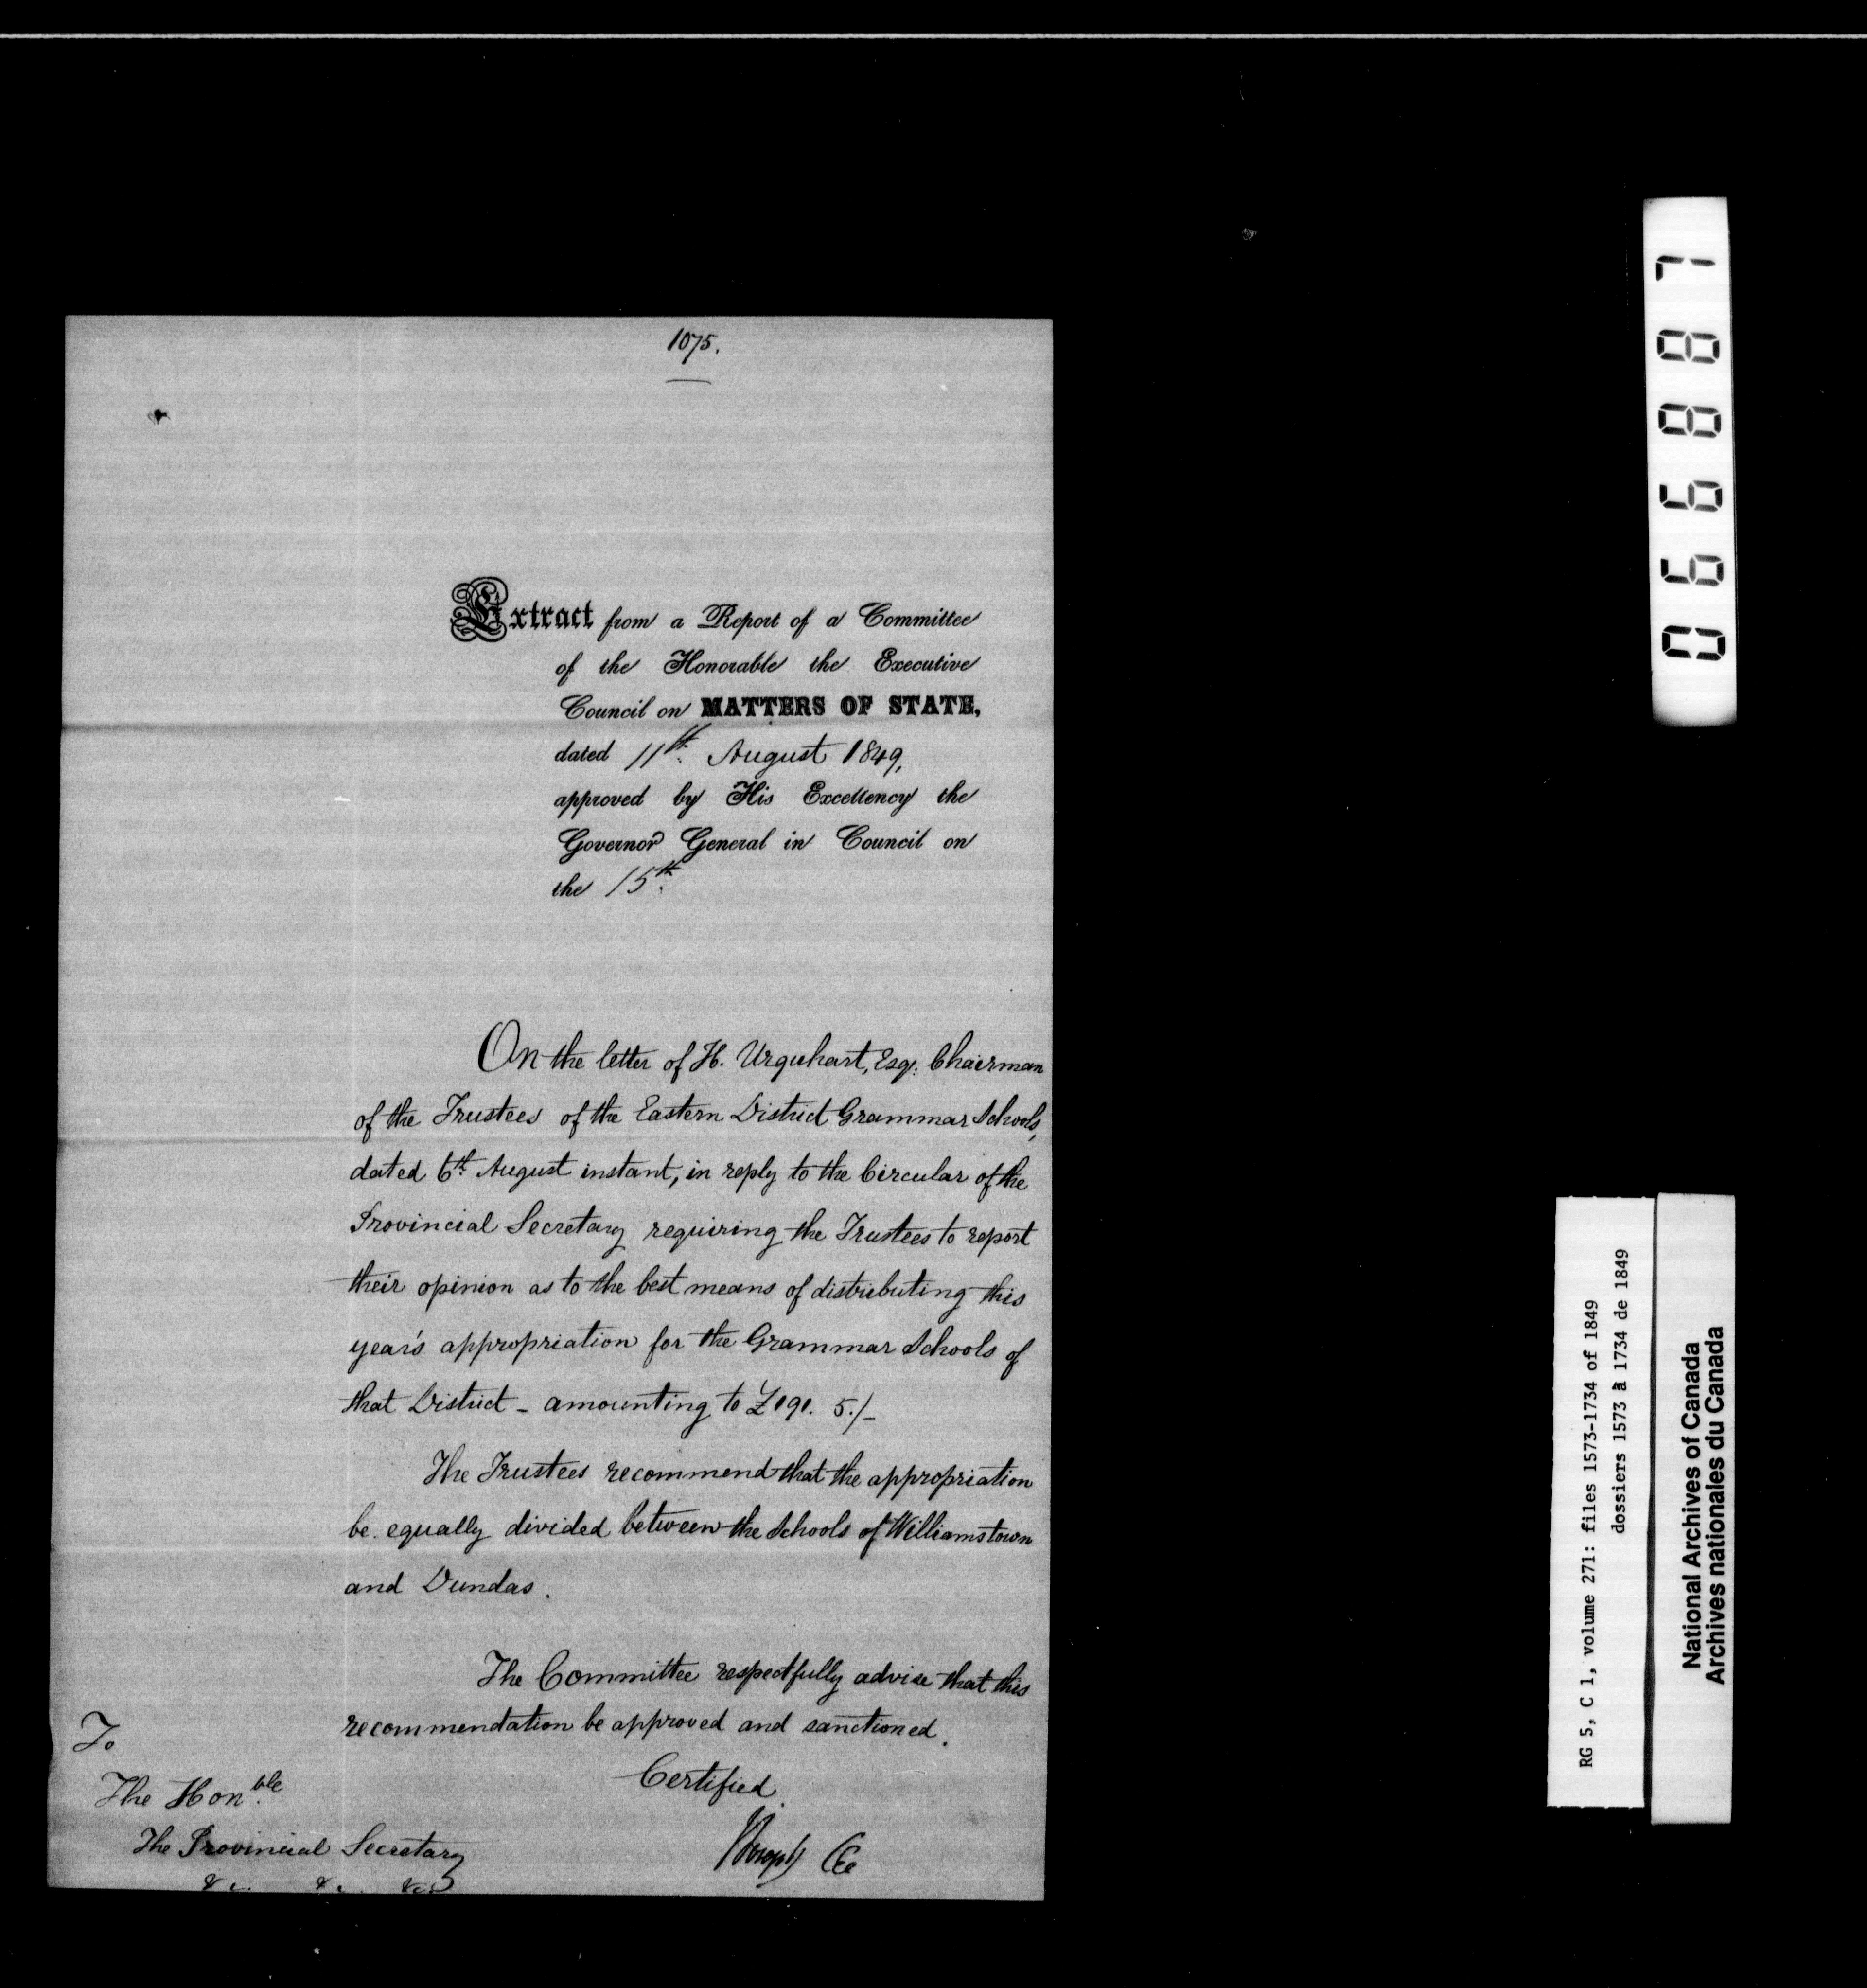 1075.
Extract from a Report of a Committee
of the Honorable the Executive
Council on MATTERS OF STATE,
dated 11th. August 1849,
approved by His Excellency the
Governor General in Council on
the 15th.
On the letter of H. Urquhart, Esq. Chairman
of the Trustees of the Eastern District Grammar Schools,
dated 6th. August instant, in reply to the Circular of the
Provincial Secretary requiring the Trustees to report
their opinion as to the best means of distributing this
year's appropriation for the Grammar Schools of
that District - amounting to £191. 5./-
The Trustees recommend that the appropriation
be equally divided between the Schools of Williamstown
and Dundas.
The Committee respectfully advise that this
recommendation be approved and sanctioned.
Certified.
To
The Honble.
The Provincial Secretary
&c. &c. &c.
Joseph
066887
RG 5, C 1, volume 271: files 1573-1734 of 1849
dossiers 1573 à 1734 de 1849
National Archives of Canada
Archives nationales du Canada